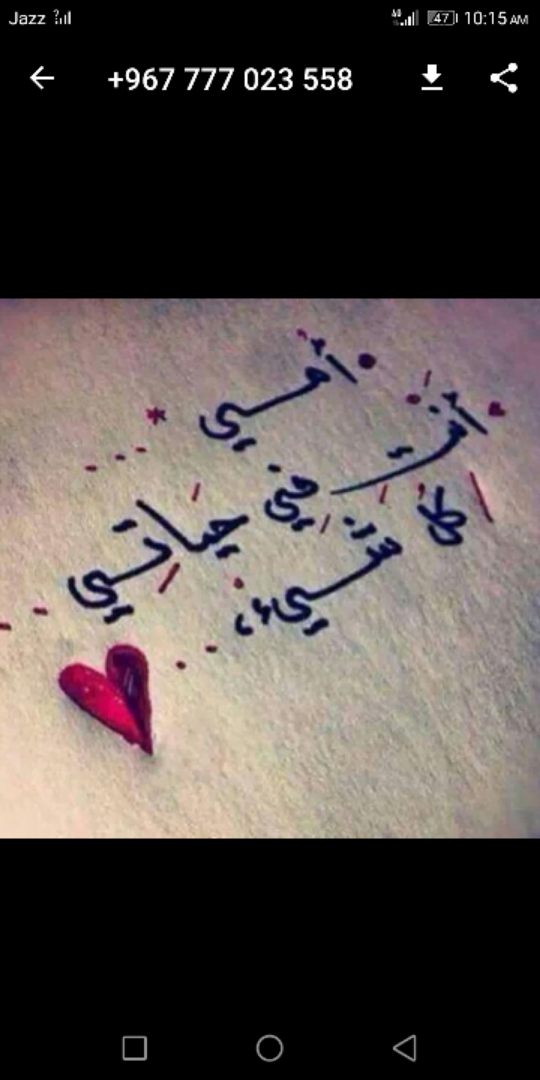 Jazz 4G 47 10:15 AM
+967 777 023 558
أمي
أنت
كل شيء في حياتي